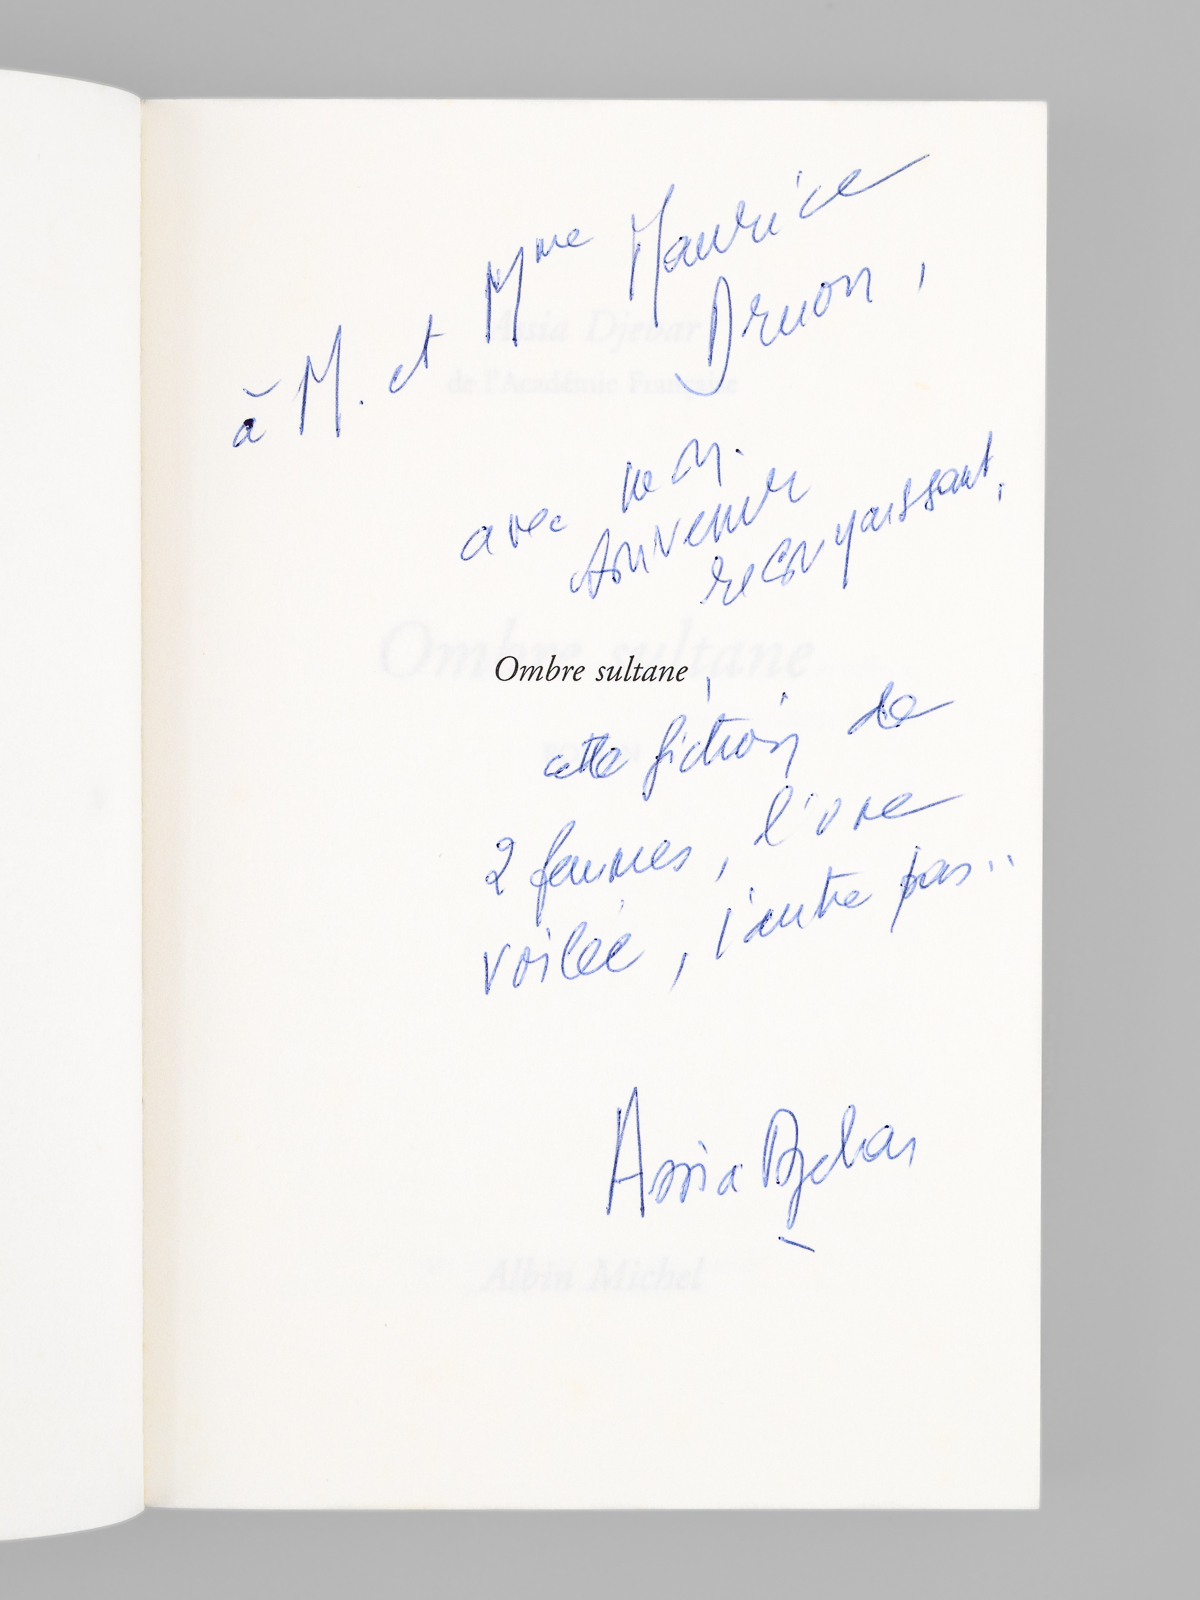 à M. et Mme Maurice
Druon,
avec mon
souvenir
reconnaissant,
Ombre sultane,
cette fiction de
2 femmes, l'une
voilée, l'autre pas..
Assia Djebar
Assia Djebar
de l'Académie Française
Ombre sultane
Albin Michel